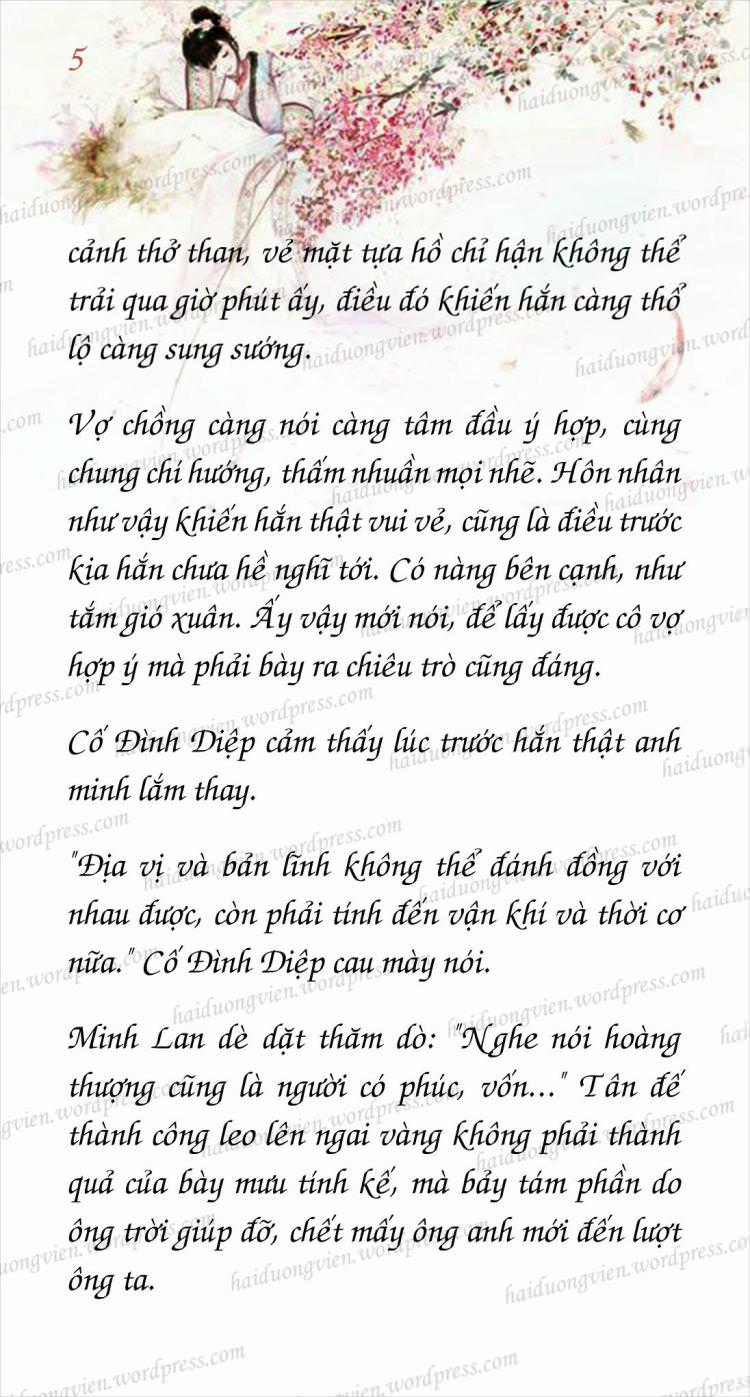 5
cảnh thở than, vẻ mặt tựa hồ chỉ hận không thể
trải qua giờ phút ấy, điều đó khiến hắn càng thổ
lộ càng sung sướng.
Vợ chồng càng nói càng tâm đầu ý hợp, cùng
chung chí hướng, thấm nhuần mọi nhẽ. Hôn nhân
như vậy khiến hắn thật vui vẻ, cũng là điều trước
kia hắn chưa hề nghĩ tới. Có nàng bên cạnh, như
tắm gió xuân. Ấy vậy mới nói, để lấy được cô vợ
hợp ý mà phải bày ra chiêu trò cũng đáng.
Cố Đình Diệp cảm thấy lúc trước hắn thật anh
minh lắm thay.
"Địa vị và bản lĩnh không thể đánh đồng với
nhau được, còn phải tính đến vận khí và thời cơ
nữa." Cố Đình Diệp cau mày nói.
Minh Lan dè dặt thăm dò: "Nghe nói hoàng
thượng cũng là người có phúc, vốn..." Tân đế
thành công leo lên ngai vàng không phải thành
quả của bày mưu tính kế, mà bảy tám phần do
ông trời giúp đỡ, chết mấy ông anh mới đến lượt
ông ta.
haiduongvien.wordpress.com